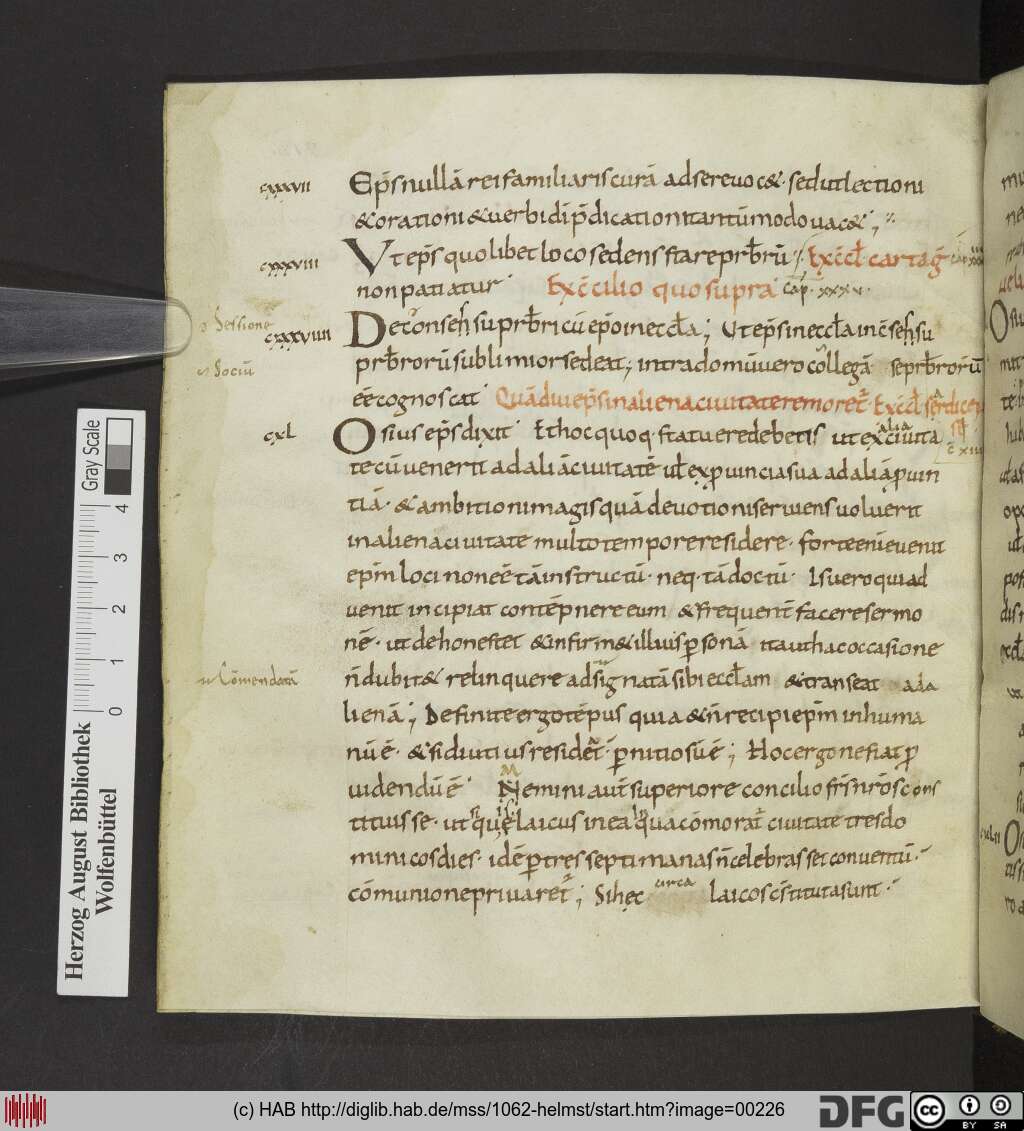 cxxxvii Ep̅s nullā rei familiaris curā ad se reuoc&· sed ut lectioni
& orationi & uerbi di p̄dicationi tantūmodo uac&;
cxxxviii Vt ep̅s quolibet loco sedens stare prb̄rū Ex c̄cl̄ cartag̅
non patiatur Ex c̄cilio quo supra cap̅· xxxv·
Sessione
cxxxviiii De c̄onsessu prb̄ri cū ep̄o in eccl̄a; Vt ep̅s in eccl̄a in c̄sessu
Sociū prb̄rorū sublimior sedeat; intra domū uero collegā se prb̄rorū
eē cognoscat Quā diu ep̅s in aliena ciuitate remoret̄ Ex c̄cl̄ serdicen
c̄ xiii
cxl Osius ep̅s dixit Et hoc quoq· statuere debetis ut ex alia ciuita
te cū uenerit ad aliā ciuitatē ul̄ ex ꝓuincia sua ad aliā ꝓuin
tiā· & ambitioni magis quā deuotioni seruiens uoluerit
in aliena ciuitate multo tempore residere· forte eni euenit
ep̅m loci non eē tā instructū· neq· tā doctū· Is uero qui ad
uenit incipiat contēpnere eum & frequent̄ facere sermo
nē· ut dehonestet & infirm& illius ꝑsonā ita ut hac occasione
Cōmendatā n̄ dubit& relinquere adsignatā sibi eccl̄am & transeat ad a
lienā; Definite ergo tēpus quia & n̄ recipi ep̅m inhuma
nū ē· & si diutius resideat ꝑnitiosū ē; Hoc ergo ne fiat ꝓ
uidendū ē Memini aut̄ superiore concilio fr̄s nr̄os cons
tituisse· ut si quis laicus in ea in qua cōmorat̄ ciuitate tres do
minicos dies· id ē ꝑ tres septimanas n̄ celebrasset conuentū·
cōmunione priuaret̄; Si hec circa laicos c̄stituta sunt·
Gray Scale
0 1 2 3 4
Herzog August Bibliothek
Wolfenbüttel
(c) HAB http://diglib.hab.de/mss/1062-helmst/start.htm?image=00226
DFG
cc BY SA